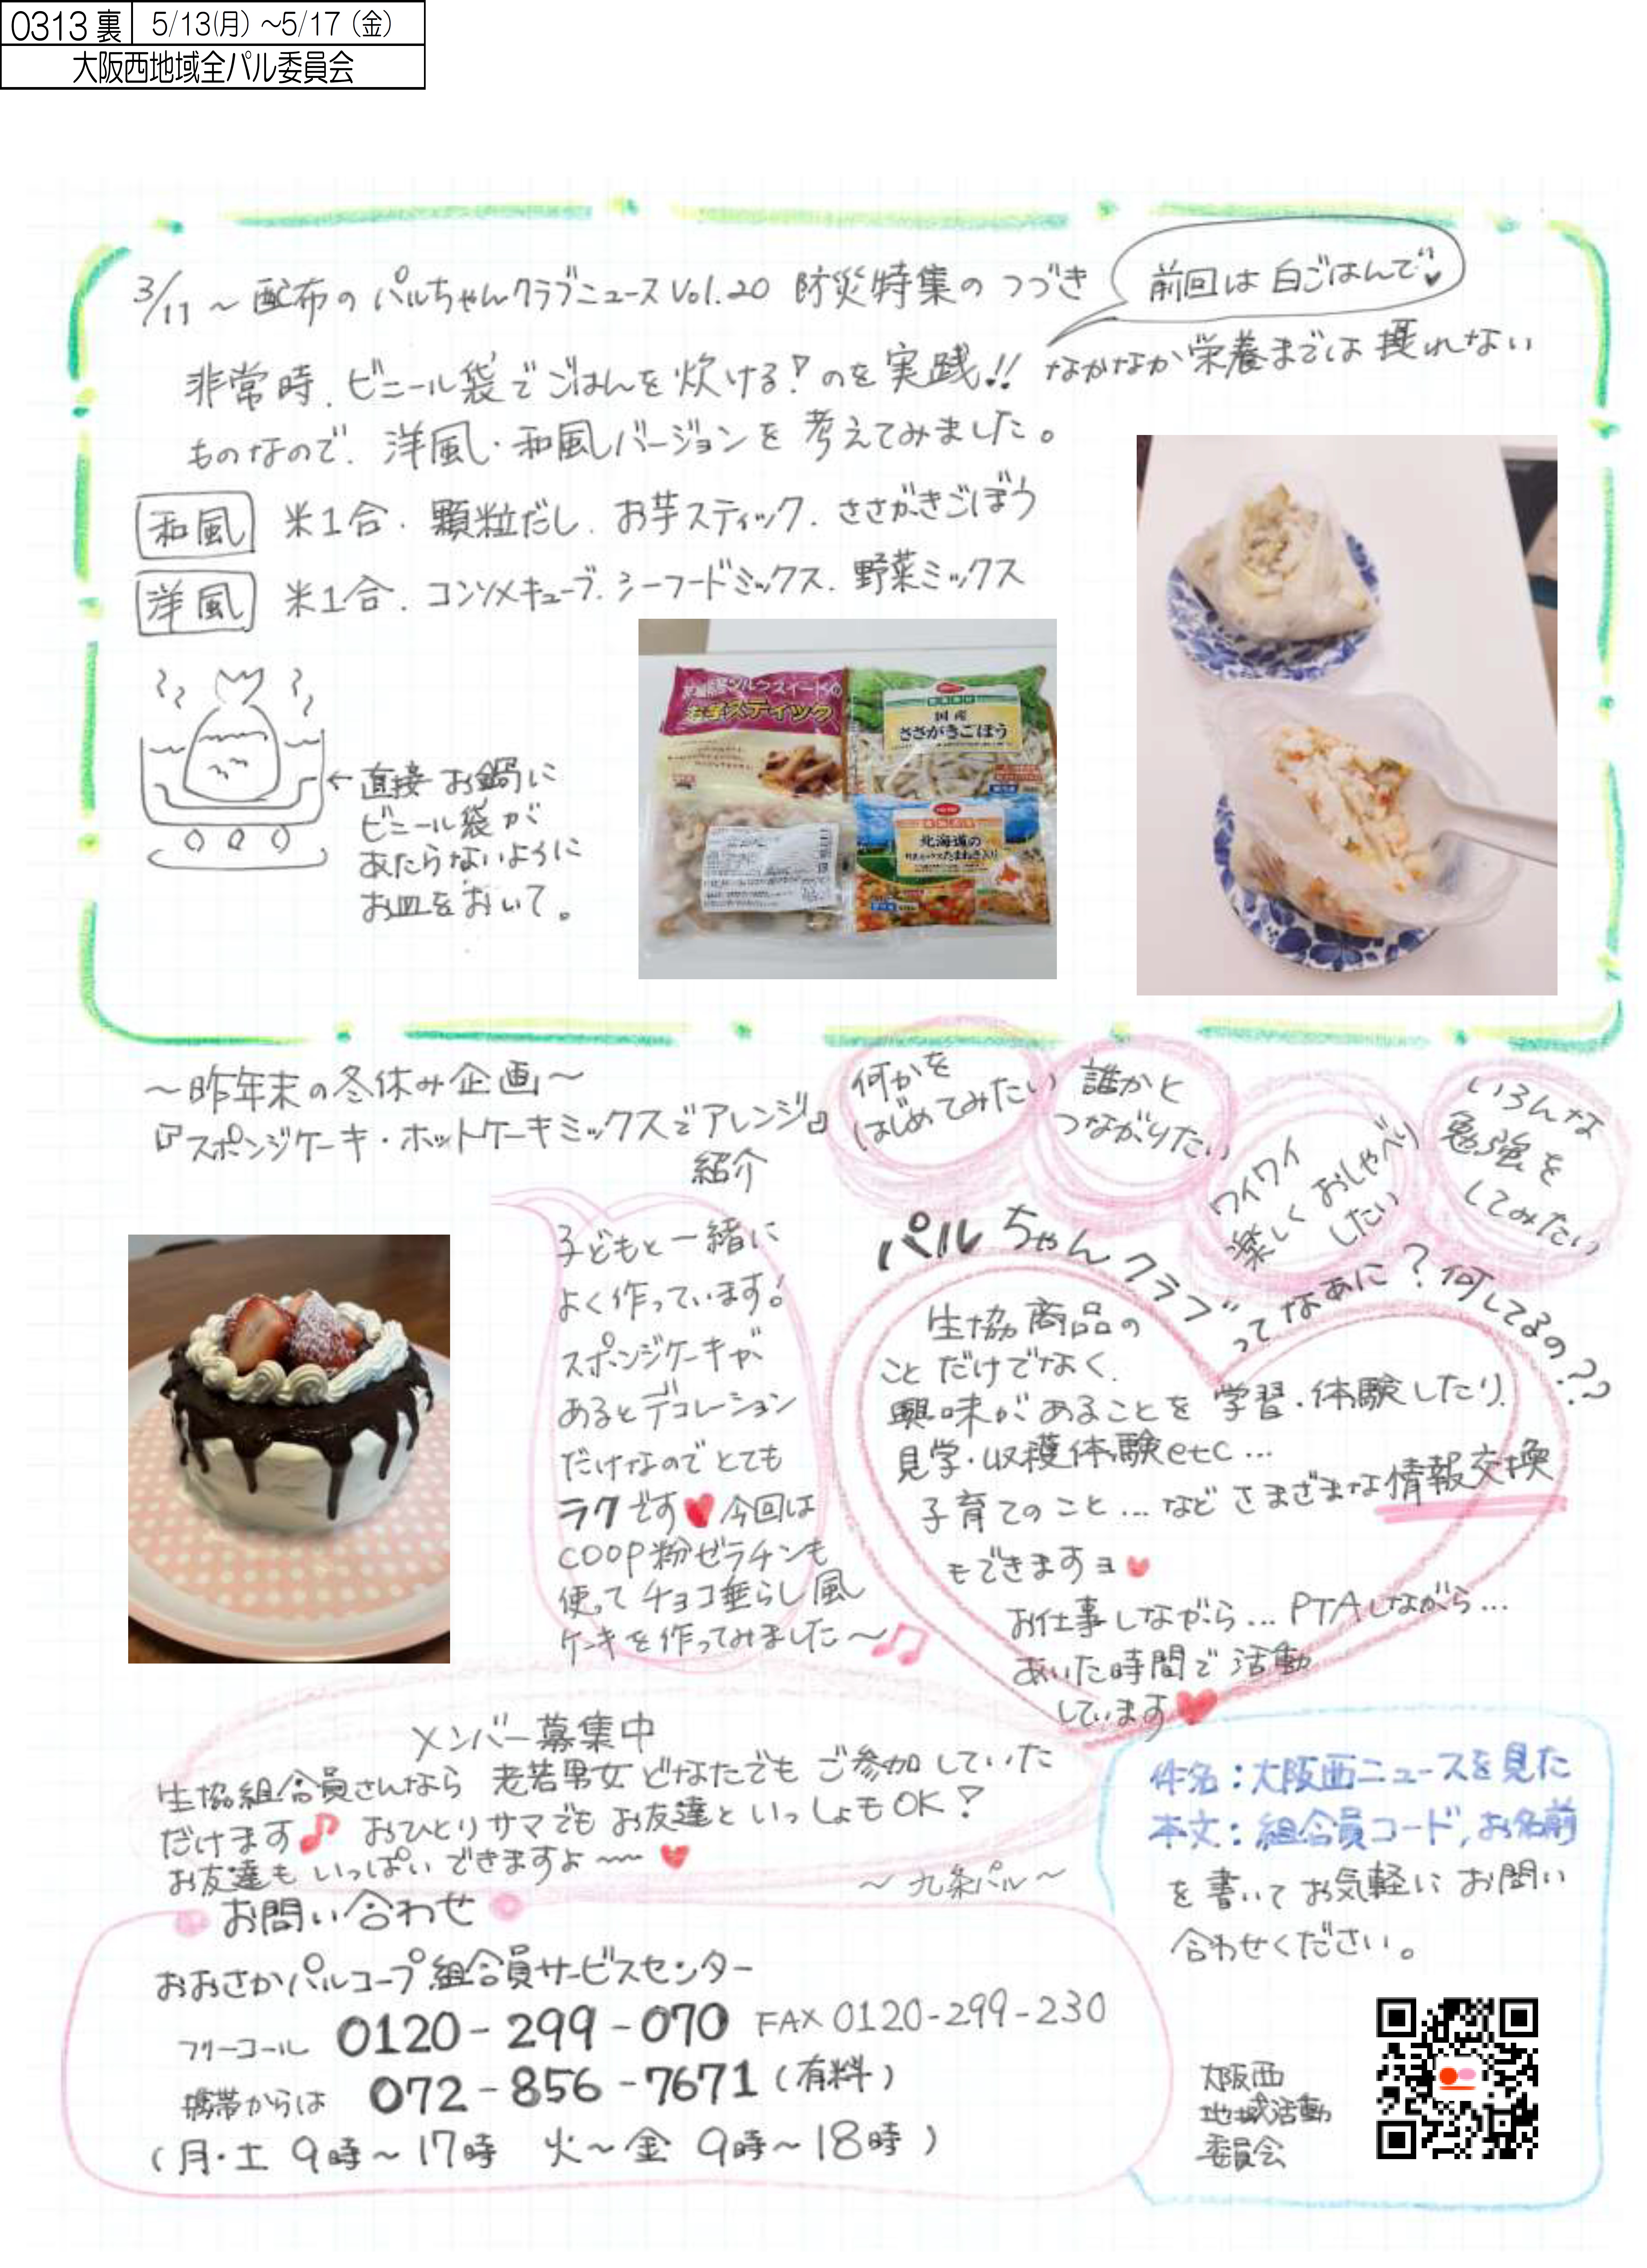 0313 裏 5/13(月)~5/17(金)
大阪西地域全パル委員会
3/11~配布のパルちゃんクラブニュースVol.20 防災特集のつづき
前回は白ごはんで♥
非常時、ビニール袋でごはんを炊ける!のを実践!! なかなか栄養までは摂れない
ものなので、洋風・和風バージョンを考えてみました。
和風 米1合、顆粒だし、お芋スティック、ささがきごぼう
洋風 米1合、コンソメキューブ、シーフードミックス、野菜ミックス
←直接お鍋に
ビニール袋が
あたらないように
お皿をおいて。
シルクスイートの
お芋スティック
国産
ささがきごぼう
北海道の
野菜ミックスたまねぎ入り
~昨年末の冬休み企画~
『スポンジケーキ・ホットケーキミックスでアレンジ』
紹介
子どもと一緒に
よく作っています!
スポンジケーキが
あるとデコレーション
だけなのでとても
ラクです♥今回は
COOP粉ゼラチンも
使ってチョコ垂らし風
ケーキを作ってみました~♫
何かを
はじめてみたい
誰かと
つながりたい
ワイワイ
楽しくおしゃべり
したい
いろんな
勉強を
してみたい
パルちゃんクラブってなあに?何してるの??
生協商品の
ことだけでなく、
興味があることを学習・体験したり、
見学・収穫体験etc…
子育てのこと…などさまざまな情報交換
もできますョ♥
お仕事しながら…PTAしながら…
あいた時間で活動
しています♥
メンバー募集中
生協組合員さんなら 老若男女どなたでもご参加していた
だけます♪ おひとりサマでもお友達といっしょもOK!
お友達もいっぱいできますよ~~♥
~九条パル~
お問い合わせ
おおさかパルコープ組合員サービスセンター
フリーコール 0120-299-070 FAX 0120-299-230
携帯からは 072-856-7671(有料)
(月・土 9時~17時 火~金 9時~18時)
件名:大阪西ニュースを見た
本文:組合員コード,お名前
を書いてお気軽にお問い
合わせください。
大阪西
地域活動
委員会